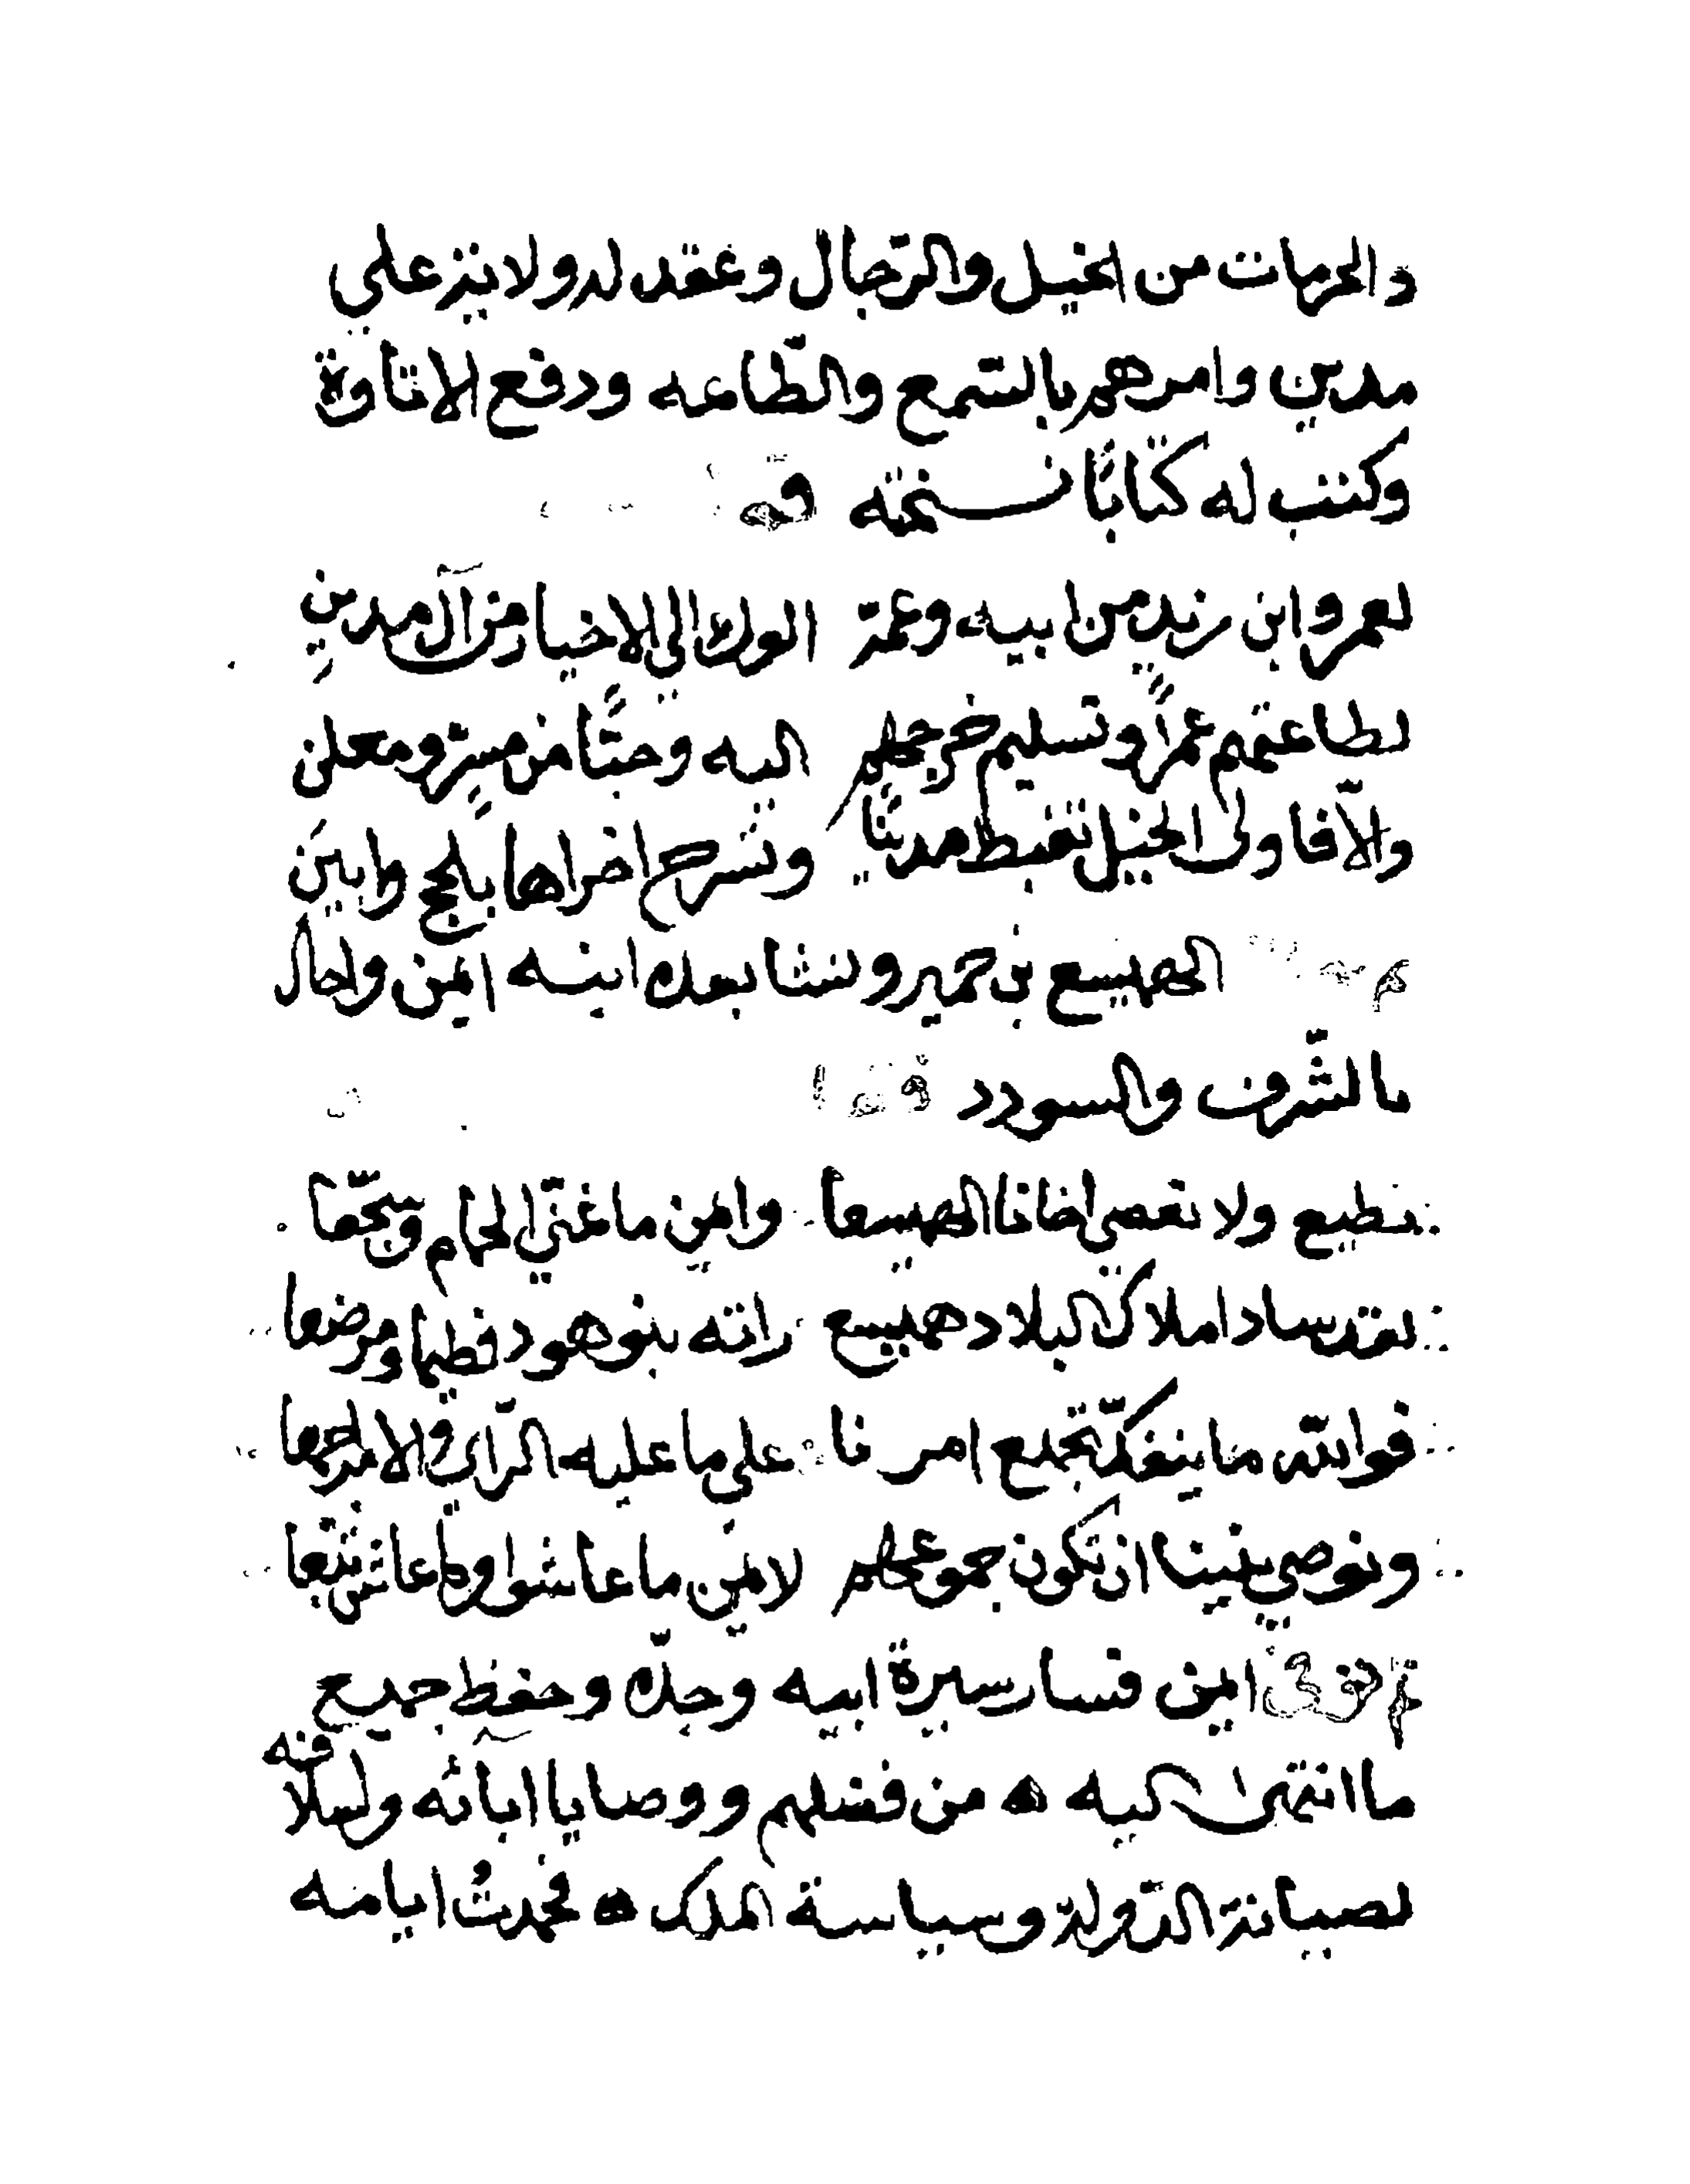 والحرمات من الخيل والرّجال وعقد له ولايته علي
مدين وامرهم بالسّمع والطّاعه ودفع الاتاوة
وكتب له كتابًا نسخته
لعمرو ابن زيد من ابيه وعمة الولا الي الاخيار من آل مدين
لطاعتهم عمرًا وتسليم خرجهم اليه وحبًّا من مسرّ ومعلن
والّا فاولى الخيل تغبط مدينًا وتسرح اخراها بلحج وابين
الهميسع بن حمير ونشا بعده ابنه ايمن وله حال
بالشّرف والسودد
نطيع ولا نعصى اخانا الهميسعا وايمن ما غنّي الحمام وسجّعا
لقد ساد املاك البلاد هميسع راته بنو هود فطيما ومرضعا
فوالله ما ينفكّ تجمع امر نا على ما عليه الرّاي والامر اجمعا
ونوصي بنينا ان تكون جموعهم لايمن ما عاشوا وما عاش تبّعا
ثم توفى ايمن فسار سيرة ابيه وجدّه وحفظ جميع
ما انتهى اليه ه من فضلهم ووصايا ابائه ولسلافه
لصيانة الدّولة وسياسة الملك ه فحمدت ايامه